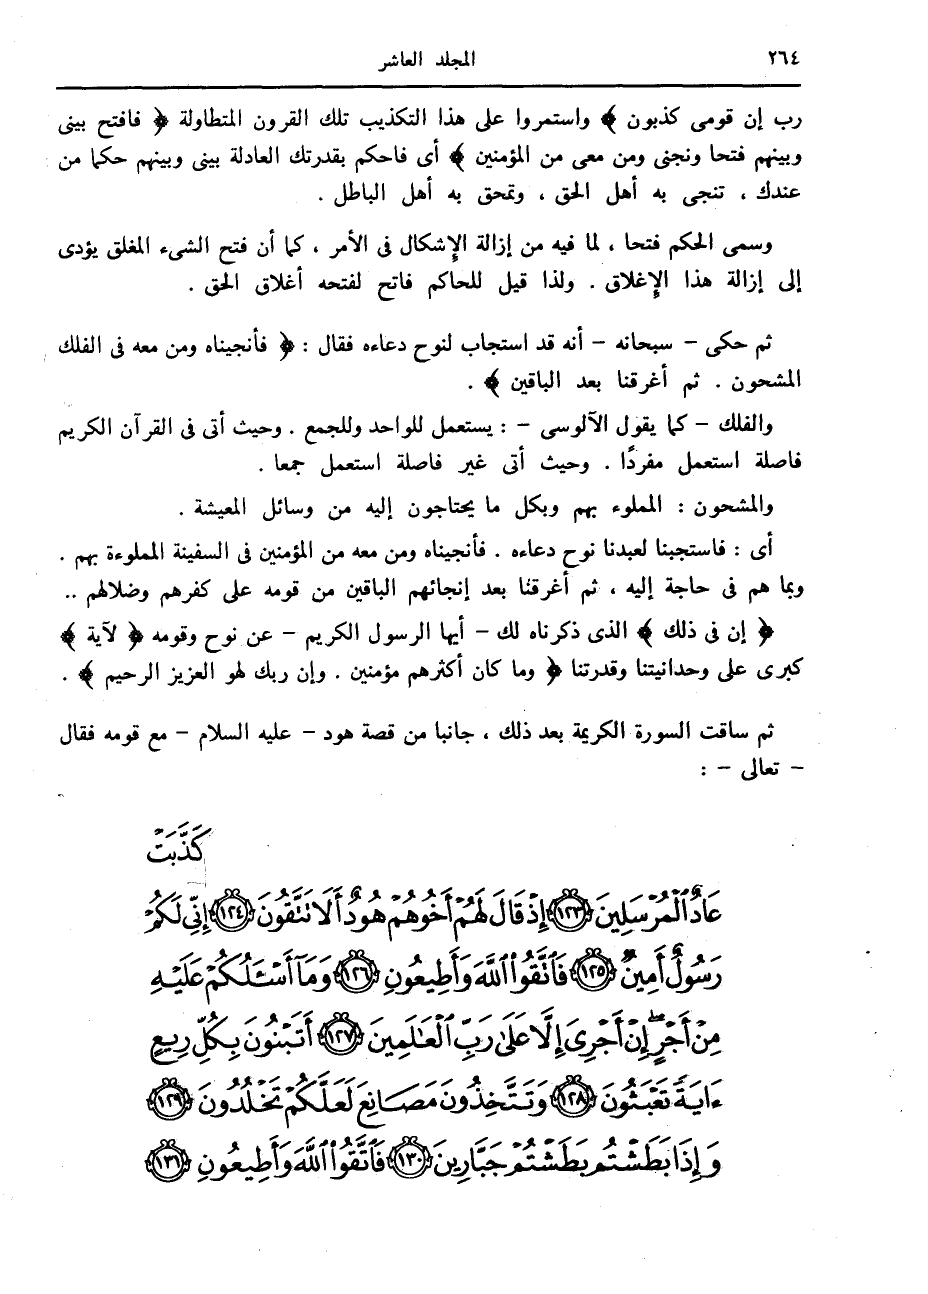 ٢٦٤ المجلد العاشر
رب إن قومى كذبون ﴾ واستمروا على هذا التكذيب تلك القرون المتطاولة ﴿ فافتح بينى
وبينهم فتحا ونجنى ومن معى من المؤمنين ﴾ أى فاحكم بقدرتك العادلة بينى وبينهم حكما من
عندك ، تنجى به أهل الحق ، وتمحق به أهل الباطل .
وسمى الحكم فتحا ، لما فيه من إزالة الإشكال فى الأمر ، كما أن فتح الشىء المغلق يؤدى
إلى إزالة هذا الإغلاق . ولذا قيل للحاكم فاتح لفتحه أغلاق الحق .
ثم حكى – سبحانه – أنه قد استجاب لنوح دعاءه فقال : ﴿ فأنجيناه ومن معه فى الفلك
المشحون . ثم أغرقنا بعد الباقين ﴾ .
والفلك – كما يقول الآلوسى – : يستعمل للواحد وللجمع . وحيث أتى فى القرآن الكريم
فاصلة استعمل مفردًا . وحيث أتى غير فاصلة استعمل جمعا .
والمشحون : المملوء بهم وبكل ما يحتاجون إليه من وسائل المعيشة .
أى : فاستجبنا لعبدنا نوح دعاءه . فأنجيناه ومن معه من المؤمنين فى السفينة المملوءة بهم .
وبما هم فى حاجة إليه ، ثم أغرقنا بعد إنجائهم الباقين من قومه على كفرهم وضلالهم ..
﴿ إن فى ذلك ﴾ الذى ذكرناه لك – أيها الرسول الكريم – عن نوح وقومه ﴿ لآية ﴾
كبرى على وحدانيتنا وقدرتنا ﴿ وما كان أكثرهم مؤمنين . وإن ربك لهو العزيز الرحيم ﴾ .
ثم ساقت السورة الكريمة بعد ذلك ، جانبا من قصة هود – عليه السلام – مع قومه فقال
– تعالى – :
كَذَّبَتْ
عَادٌ ٱلْمُرْسَلِينَ ١٢٣ إِذْ قَالَ لَهُمْ أَخُوهُمْ هُودٌ أَلَا تَتَّقُونَ ١٢٤ إِنِّى لَكُمْ
رَسُولٌ أَمِينٌ ١٢٥ فَٱتَّقُوا۟ ٱللَّهَ وَأَطِيعُونِ ١٢٦ وَمَآ أَسْـَٔلُكُمْ عَلَيْهِ
مِنْ أَجْرٍ ۖ إِنْ أَجْرِىَ إِلَّا عَلَىٰ رَبِّ ٱلْعَـٰلَمِينَ ١٢٧ أَتَبْنُونَ بِكُلِّ رِيعٍ
ءَايَةً تَعْبَثُونَ ١٢٨ وَتَتَّخِذُونَ مَصَانِعَ لَعَلَّكُمْ تَخْلُدُونَ ١٢٩
وَإِذَا بَطَشْتُم بَطَشْتُمْ جَبَّارِينَ ١٣٠ فَٱتَّقُوا۟ ٱللَّهَ وَأَطِيعُونِ ١٣١